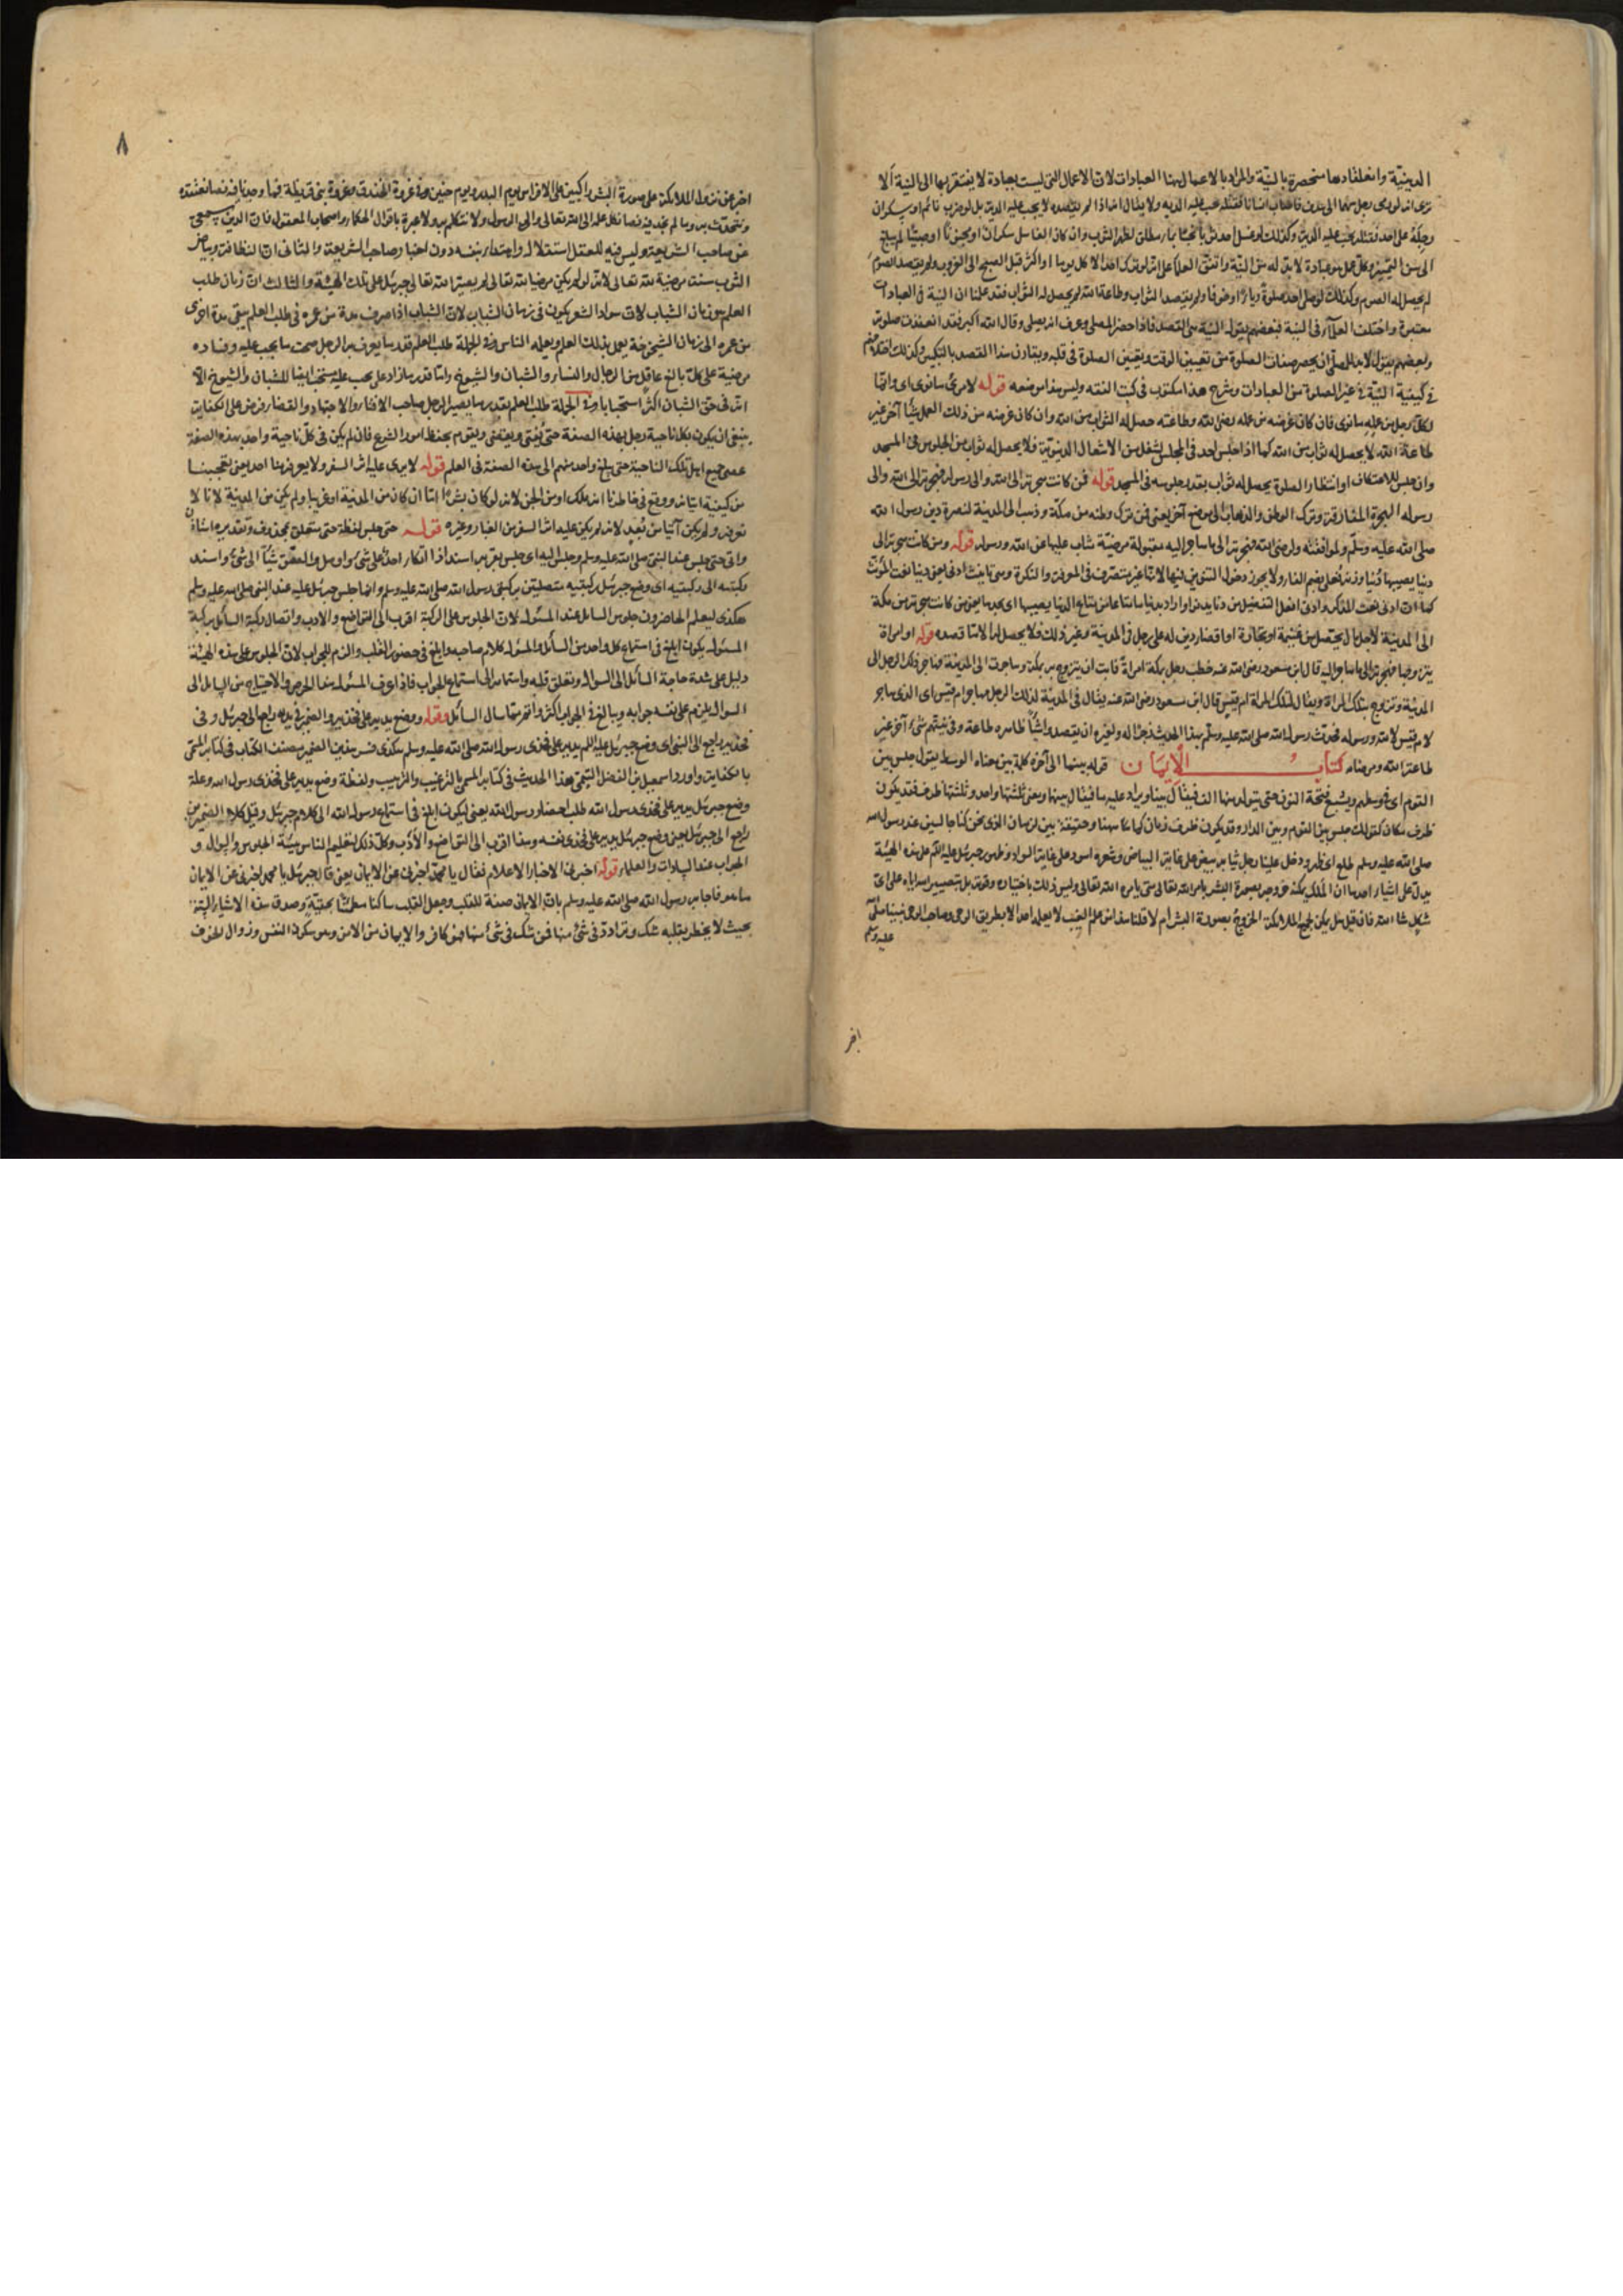 الدينية وانعقادها منحصرة بالنيّة والمراد بالاعمال ههنا العبادات لان الاعمال التى ليست بعبادة لا يفتقر بها الى النية ألا
ترى انه لو رمى رجل سهما الى هدف فاصاب انسانا فقتله يجب عليه الدية ولا يقال انه اذا لم يقصده لا يجب عليه الدية بل لو ضرب نائم او سكران
رجله على احد فقتله يجب عليه الدية وكذلك لو غسل احد ثوبا نجسا بماء مطلق لطهر الثوب وان كان الغاسل سكران او مجنونا او صبيّا لم يبلغ
الى سن التمييز وكل عمل هو عبادة لا بد له من النيّة واتفق العلماء على انه لو ترك احد الاكل يوما او اكثر قبل الصبح الى الغروب ولم يقصد الصوم
لم يحصل له الصوم وكذلك لو صلى احد صلوة رياء او خوفا ولم يقصد الثواب وطاعة الله لم يحصل له الثواب فقد علمنا ان النية فى العبادات
معتبرة واختلف العلماء فى النية فبعضهم يقول النية هى القصد فاذا حضر المصلى وعرف انه يصلى وقال الله اكبر فقد انعقدت صلوته
وبعضهم يقول لا بد للمصلى ان يحصر صفات الصلوة من تعيين الوقت وتعيين الصلوة فى قلبه ويقارن هذا القصد بالتكبير وكذلك اختلافهم
فى كيفية النيّة فى غير الصلوة من العبادات وشرح هذا مكتوب فى كتب الفقه وليس هذا موضعه قوله لامرئ ما نوى اى وانما
لكل رجل من عمله ما نوى فان كان غرضه من عمله رضى الله وطاعته حصل له الثواب من الله وان كان غرضه من ذلك العمل شيأ آخر غير
طاعة الله لا يحصل له ثواب من الله كما اذا جلس احد فى المجلس لشغل من الاشغال الدنيوية فلا يحصل له ثواب من الجلوس فى المسجد
وان جلس للاعتكاف او انتظار الصلوة يحصل له ثواب بقدر جلوسه فى المسجد قوله فمن كانت هجرته الى الله والى رسوله فهجرته الى الله والى
رسوله الهجرة المفارقة وترك الوطن والذهاب الى موضع آخر يعنى فمن ترك وطنه من مكة وذهب الى المدينة لنصرة دين رسول الله
صلى الله عليه وسلم ولموافقته ولرضى الله فهجرته الى ما هاجر اليه مقبولة مرضيّة يثاب عليها عن الله ورسوله قوله ومن كانت هجرته الى
دنيا يصيبها دُنيا وزنه فُعلى بضم الفاء ولا يجوز دخول التنوين فيها لانها غير متصرف فى المعرفة والنكرة وهى تأنيث ادنى يعنى دنيا نعت المؤنث
كما ان ادنى نعت المذكر وادنى افعل التفضيل من دنا يدنو اراد بدنيا ههنا متاعا من متاع الدنيا يصيبها اى يجدها يعنى من كانت هجرته من مكة
الى المدينة لاجل مال يحصل من غنيمة او تجارة او اقضاء دين له على رجل فى المدينة وغير ذلك فلا يحصل له الا ما قصده قوله او امراة
يتزوجها فهجرته الى ما هاجر اليه قال ابن مسعود رضى الله عنه خطب رجل بمكة امراةً فابت ان يتزوج به بمكة وهاجرت الى المدينة فهاجر ذلك الرجل الى
المدينة وتزوج بتلك المراة ويقال لتلك المراة ام قيس قال ابن مسعود رضى الله عنه يقال فى المدينة لذلك الرجل مهاجر ام قيس اى الذى هاجر
لام قيس لا لله ورسوله فحدث رسول الله صلى الله عليه وسلم بهذا الحديث زجرًا له ولغيره ان يقصدوا شيأ ظاهره طاعة وفى نيتهم شئ آخر غير
طاعة الله ومرضاته كتاب الأيمان قوله بينما الى آخره كلمة بين معناه الوسط يقول جلس بين
القوم اى فى وسطهم ويشبع فتحة النون حتى يتولد منها الف فيقال بينا ويزاد عليه ما فيقال بينما ويعنى ثلثتها واحد وثلثتها ظرف فقد يكون
ظرف مكان كقولك جلس بين القوم وبين الدار وقد يكون ظرف زمان كما هنا ههنا وحقيقته بين لزمان الذى نحن كنا جالسين عند رسول الله
صلى الله عليه وسلم طلع اى ظهر ودخل علينا رجل ثيابه بيض على غاية البياض وشعره اسود على غاية السواد وجلوس جبرئيل عليه السلم على هذه الهيئة
يدل على اشياء احدها ان الملك يمكنه خروجه بصورة البشر بامر الله تعالى متى يامره الله تعالى وليس ذلك باختياره وقوته بل بتصيير الله اياه على اى
شكل شاء الله فان قيل هل يمكن لجميع الملائكة الخروج بصورة البشر ام لا قلنا هذا من علم الغيب لا يعلمه احد الا بطريق الوحى وصاحب الوحى نبينا صلى
عليه وسلم
اخبر
٨
اخبر عن نزول الملائكة على صورة البشر راكبين على الافراس يوم البدر ويوم حنين وفى غزوة الخندق وغزوة بنى قريظة فما وجدنا فيه نصا نعتقده
ونتحدث به وما لم نجد فيه نصا نكل علمه الى الله تعالى والى الرسول ولا نتكلم به ولا عبرة باقوال الحكماء واصحاب المعقول فان الدين يجيئ
عن صاحب الشريعة وليس فيه للعقل استقلال واهتداء بنفسه دون اخبار صاحب الشريعة والثانى ان النظافة وبياض
الثوب سنة مرضية لله تعالى لانه لو لم يكن مرضيا لله تعالى لم يصيّر الله تعالى جبرئيل على تلك الهيئة والثالث ان زمان طلب
العلم هو زمان الشباب لان سواد الشعر يكون فى زمان الشباب لان الشباب اذا صرف مدة من عمره فى طلب العلم يبقى مدة اخرى
من عمره الى زمان الشيخوخة يعمل بذلك العلم ويعلمه الناس وفى الجملة طلب العلم قدر ما يعرف به الرجل صحت ما يجب عليه وفساده
مرضية على كل بالغ عاقل من الرجال والنساء والشبان والشيوخ واما قدر ما زاد على يجب عليه مستحب ايضا للشبان والشيوخ الا
انه فى حق الشبان اكثر استحبابا وفى الجملة طلب العلم بقدر ما يصير الرجل صاحب الافتاء والاجتهاد والقضاء فرض على الكفاية
ينبغى ان يكون بكل ناحية رجل بهذه الصفة حتى يُفتى ويقضى ويقوم بحفظ امور الشرع فان لم يكن فى كل ناحية واحد بهذه الصفة
عصى جميع اهل تلك الناحية حتى يبلغ واحد منهم الى هذه الصفة فى العلم قوله لا يرى عليه اثر السفر ولا يعرفه منا احد يعنى تعجبنا
من كيفية اتيانه ووقع فى خاطرنا انه ملك او من الجن لانه لو كان بشرًا اما ان كان من المدينة او غريبا ولم يكن من المدينة لانا لا
نعرفه ولم يكن آتيا من بُعد لانه لم يكن عليه اثر السفر من الغبار وغيره قوله حتى جلس لفظة حتى متعلق بمحذوف وتقديره استأذن
واتى حتى جلس عند النبى صلى الله عليه وسلم وجلس اليه اى جلس بقربه اسند اذا اتكأ احد على شئ او اوصل والصق شيأ الى شئ واسند
ركبتيه الى ركبتيه اى وضع جبرئيل ركبتيه متصلتين بركبتى رسول الله صلى الله عليه وسلم وانما جلس جبرئيل عليه عند النبى صلى الله عليه وسلم
هكذى ليعلم الحاضرون جلوس السائل عند المسئول لان الجلوس على الركبة اقرب الى التواضع والادب واتصال ركبة السائل بركبة
المسئول يكون ابلغ فى استماع كل واحد من السائل والمسئول كلام صاحبه وابلغ فى حضور القلب والزم للجواب لان الجلوس على هذه الهيئة
دليل على شدة حاجة السائل الى السؤال وتعلق قلبه واهتمامه الى استماع الجواب فاذا عرف المسئول هذا الحرص والاحتياج من السائل الى
السؤال يلزم على نفسه جوابه ويبالغ فى الجواب اكثر واتم مما سال السائل وقوله ووضع يديه على فخذيه والضمير فى يديه راجع الى جبرئيل وفى
فخذيه راجع الى النبى اى وضع جبرئيل عليه السلم يديه على فخذى رسول الله صلى الله عليه وسلم هكذى فسر هذين الضميرين مصنف الكتاب فى كتابه المسمى
بالكفاية واورد اسمعيل بن الفضل التيمى هذا الحديث فى كتابه المسمى بالترغيب والترهيب ولفظة وضع يديه على فخذى رسول الله وعلة
وضع جبرئيل يديه على فخذى رسول الله طلب احضار رسول الله يعنى ليكون ابلغ فى استماع رسول الله الى كلام جبرئيل وقيل كلا الضميرين
راجع الى جبرئيل يعنى وضع جبرئيل يديه على فخذى نفسه وهذا اقرب الى التواضع والأدب وكل ذلك لتعليم الناس هيئة الجلوس والسؤال و
الجواب عند السادات والعلماء قوله اخبرنى الاخبار الاعلام فقال يا محمد اخبرنى عن الايمان يعنى قال جبرئيل يا محمد اخبرنى عن الايمان
ما هو فاجابه رسول الله صلى الله عليه وسلم بان الايمان صفة للقلب وجعل القلب ساكنا مطمئنا بحقيّة وصدق هذه الاشياء الستة
بحيث لا يخطر بقلبه شك وتردّد فى شئ منها فمن شك فى شئ منها فهو كافر والايمان من الامن وهو سكون النفس وزوال الخوف